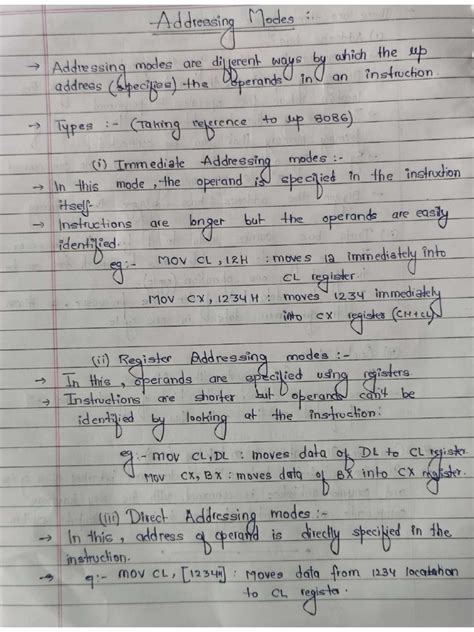 Addressing Modes :-
→ Addressing modes are different ways by which the up
address (specifies) the operands in an instruction.
→ Types :- (Taking reference to up 8086)
(i) Immediate Addressing modes :-
→ In this mode, the operand is specified in the instruction
itself.
→ Instructions are longer but the operands are easily
identified.
eg :- MOV CL, 12H : moves 12 immediately into
CL register.
MOV CX, 1234H : moves 1234 immediately
into CX register (CH+CL)
(ii) Register Addressing modes :-
→ In this, operands are specified using registers.
→ Instructions are shorter but operands can't be
identified by looking at the instruction.
eg :- mov CL, DL : moves data of DL to CL register.
Mov CX, BX : moves data of BX into CX register.
(iii) Direct Addressing modes :-
→ In this, address of operand is directly specified in the
instruction.
→ eg :- mov CL, [1234H] : Moves data from 1234 location
to CL register.